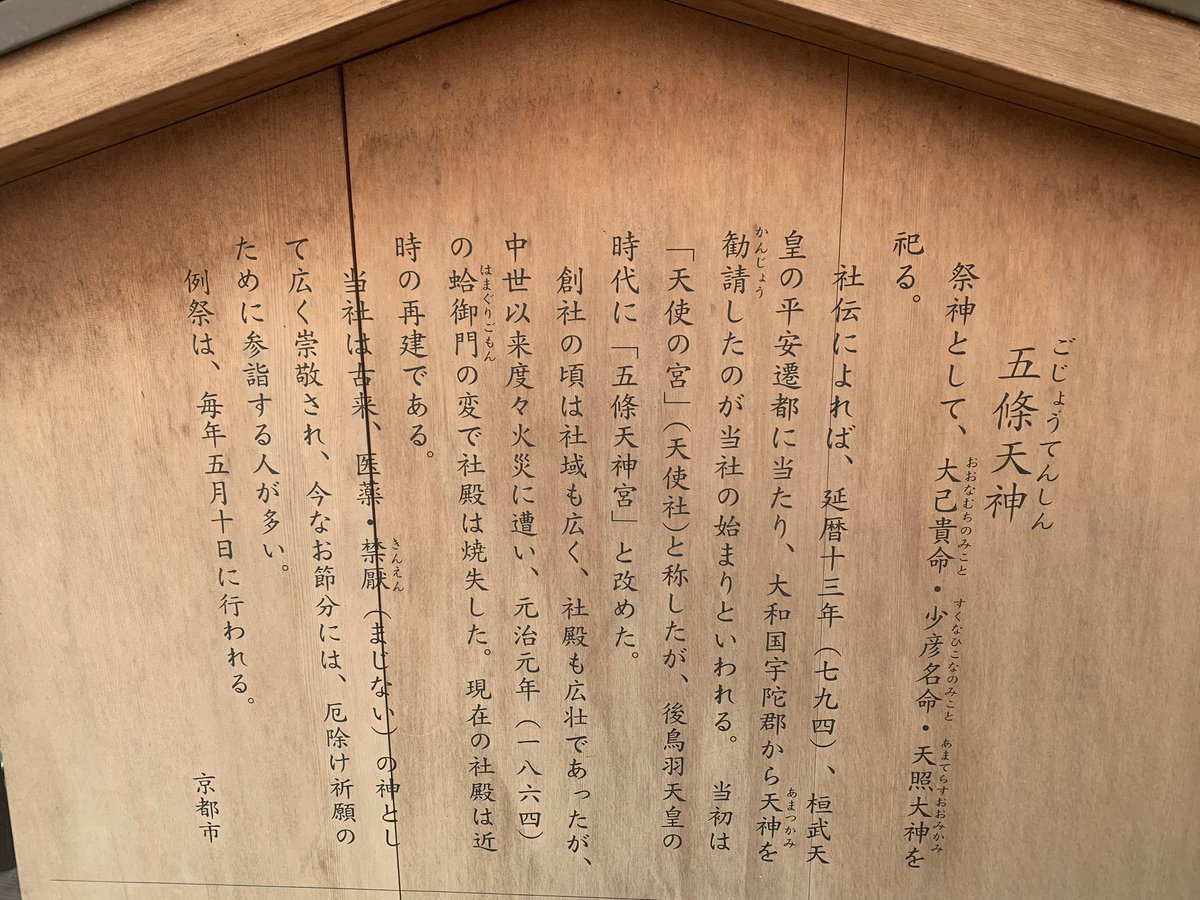 ごじょうてんしん
五條天神
おおなむちのみこと すくなひこなのみこと あまてらすおおみかみ
祭神として、大己貴命・少彦名命・天照大神を
祀る。
社伝によれば、延暦十三年（七九四）、桓武天
皇の平安遷都に当たり、大和国宇陀郡から天神を
あまつかみ
かんじょう
勧請したのが当社の始まりといわれる。当初は
「天使の宮」（天使社）と称したが、後鳥羽天皇の
時代に「五條天神宮」と改めた。
創社の頃は社域も広く、社殿も広壮であったが、
中世以来度々火災に遭い、元治元年（一八六四）
はまぐりごもん
の蛤御門の変で社殿は焼失した。現在の社殿は近
時の再建である。
きんえん
当社は古来、医薬・禁厭（まじない）の神とし
て広く崇敬され、今なお節分には、厄除け祈願の
ために参詣する人が多い。
例祭は、毎年五月十日に行われる。
京都市